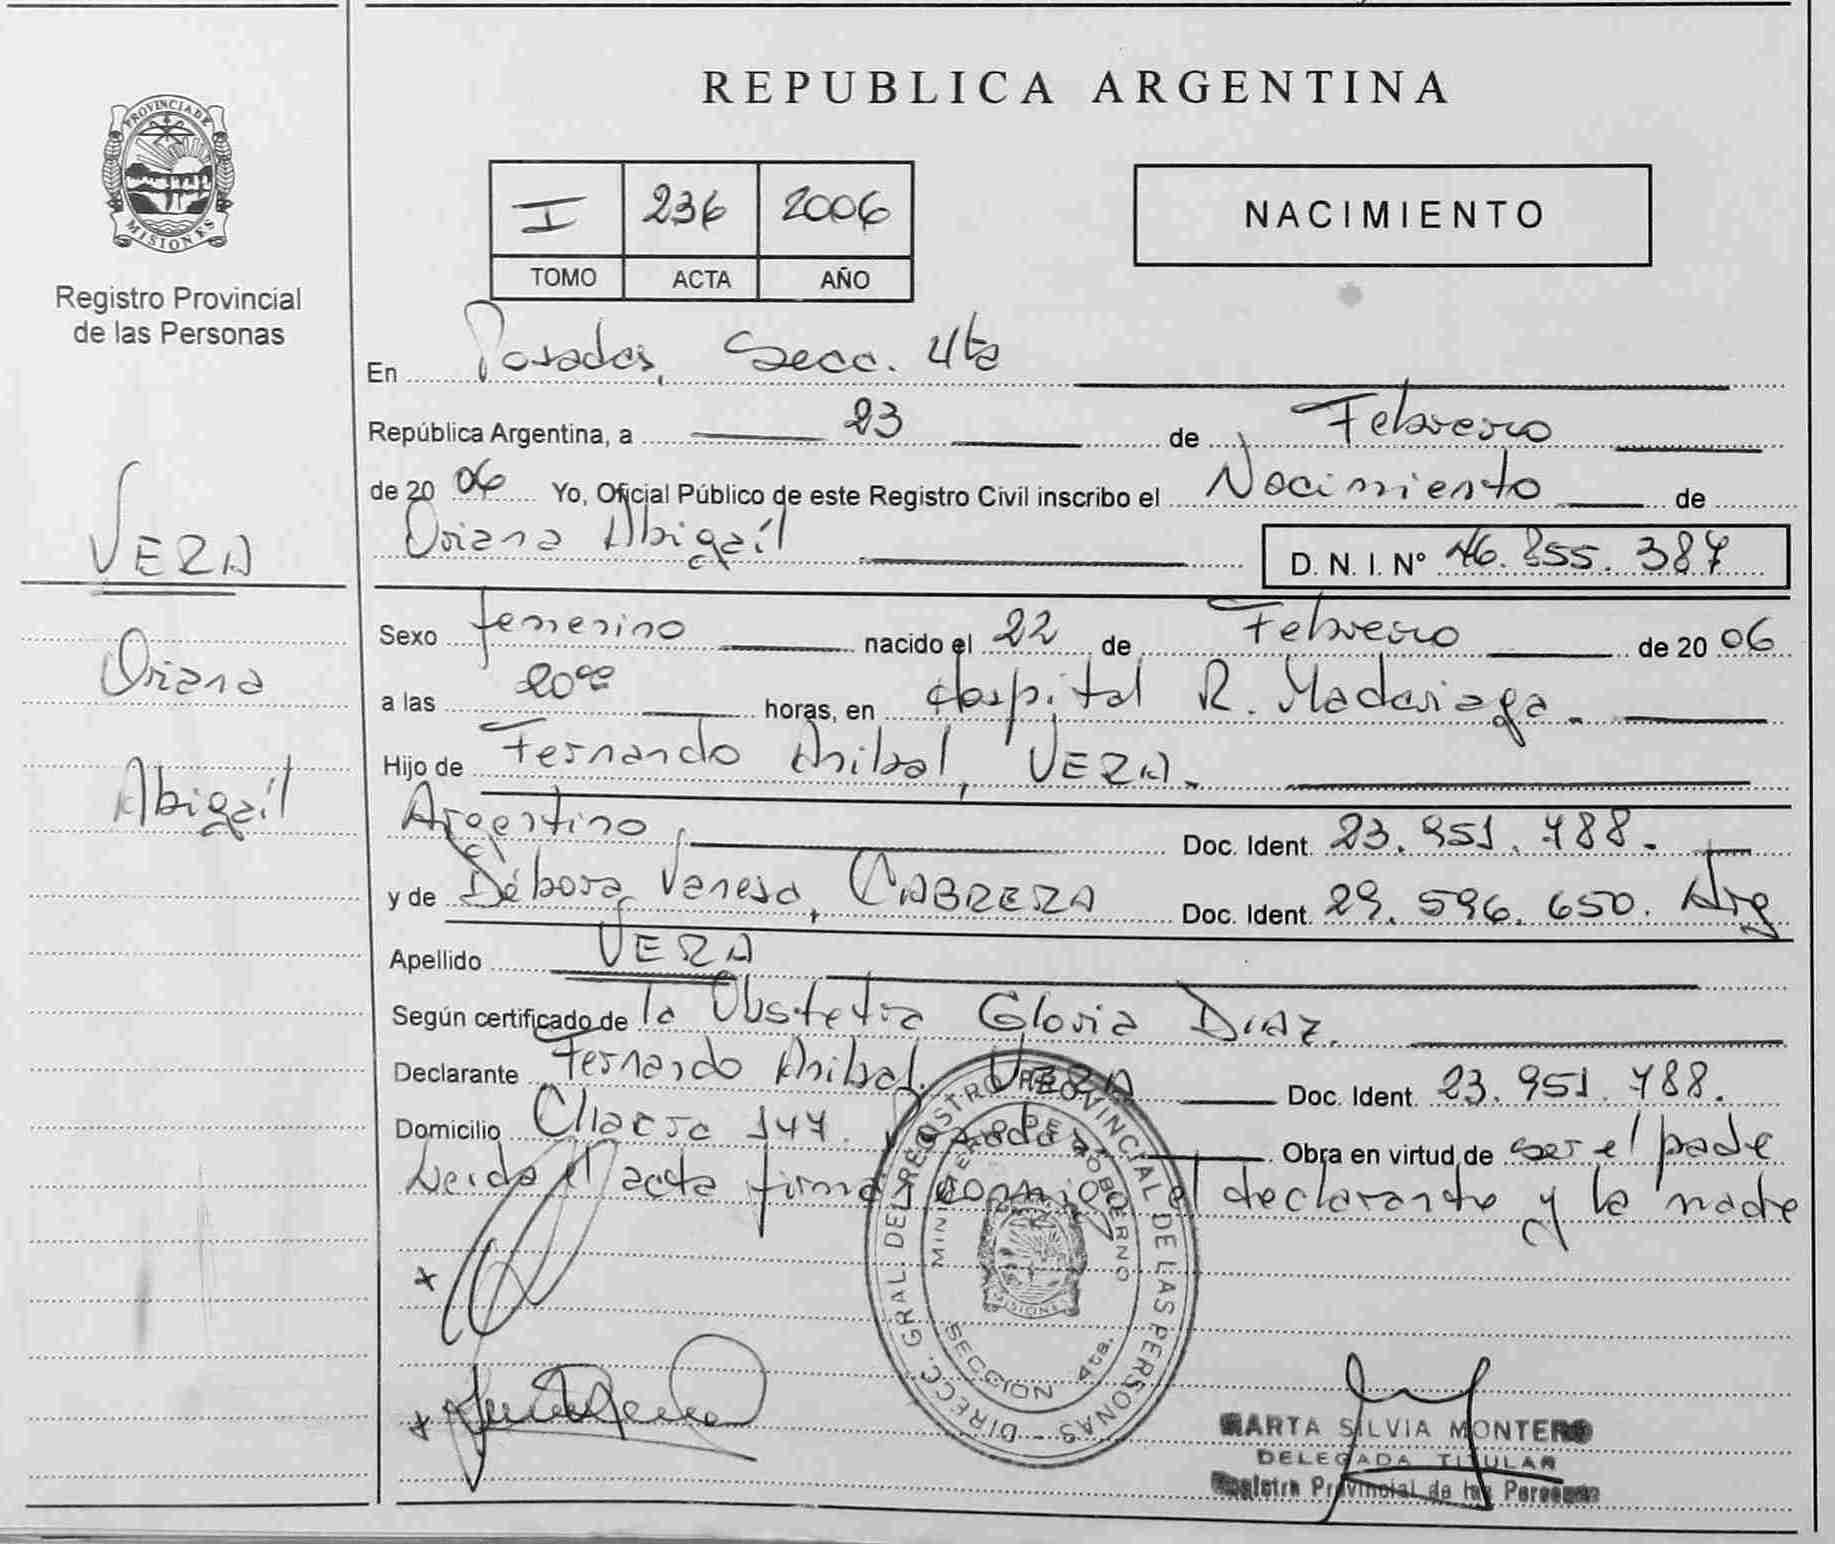 REPUBLICA ARGENTINA
PROVINCIA DE
MISIONES
Registro Provincial
de las Personas
I 236 2006
TOMO ACTA AÑO
NACIMIENTO
VERA
Oriana
Abigaíl
En Posadas, Secc. 4ta
República Argentina, a 23 de Febrero
de 20 06 Yo, Oficial Público de este Registro Civil inscribo el Nacimiento de
Oriana Abigaíl D. N. I. Nº 46.855.387
Sexo femenino nacido el 22 de Febrero de 20 06
a las 20 horas, en Hospital R. Madariaga.
Hijo de Fernando Anibal, VERA.
Argentino Doc. Ident. 23.951.788.
y de Débora Vanesa, CABRERA Doc. Ident. 29.596.650. Arg
Apellido VERA
Según certificado de la Obstetra Gloria Diaz.
Declarante Fernando Anibal. VERA Doc. Ident. 23.951.788.
Domicilio Chacra 147. Posadas Obra en virtud de ser el padre
Leida el acta firma conmigo el declarante y la madre
DIRECC. GRAL. DEL REGISTRO PROVINCIAL DE LAS PERSONAS
MINISTERIO DE GOBIERNO
MISIONES
SECCION 4ta.
MARTA SILVIA MONTERO
DELEGADA TITULAR
Registro Provincial de las Personas